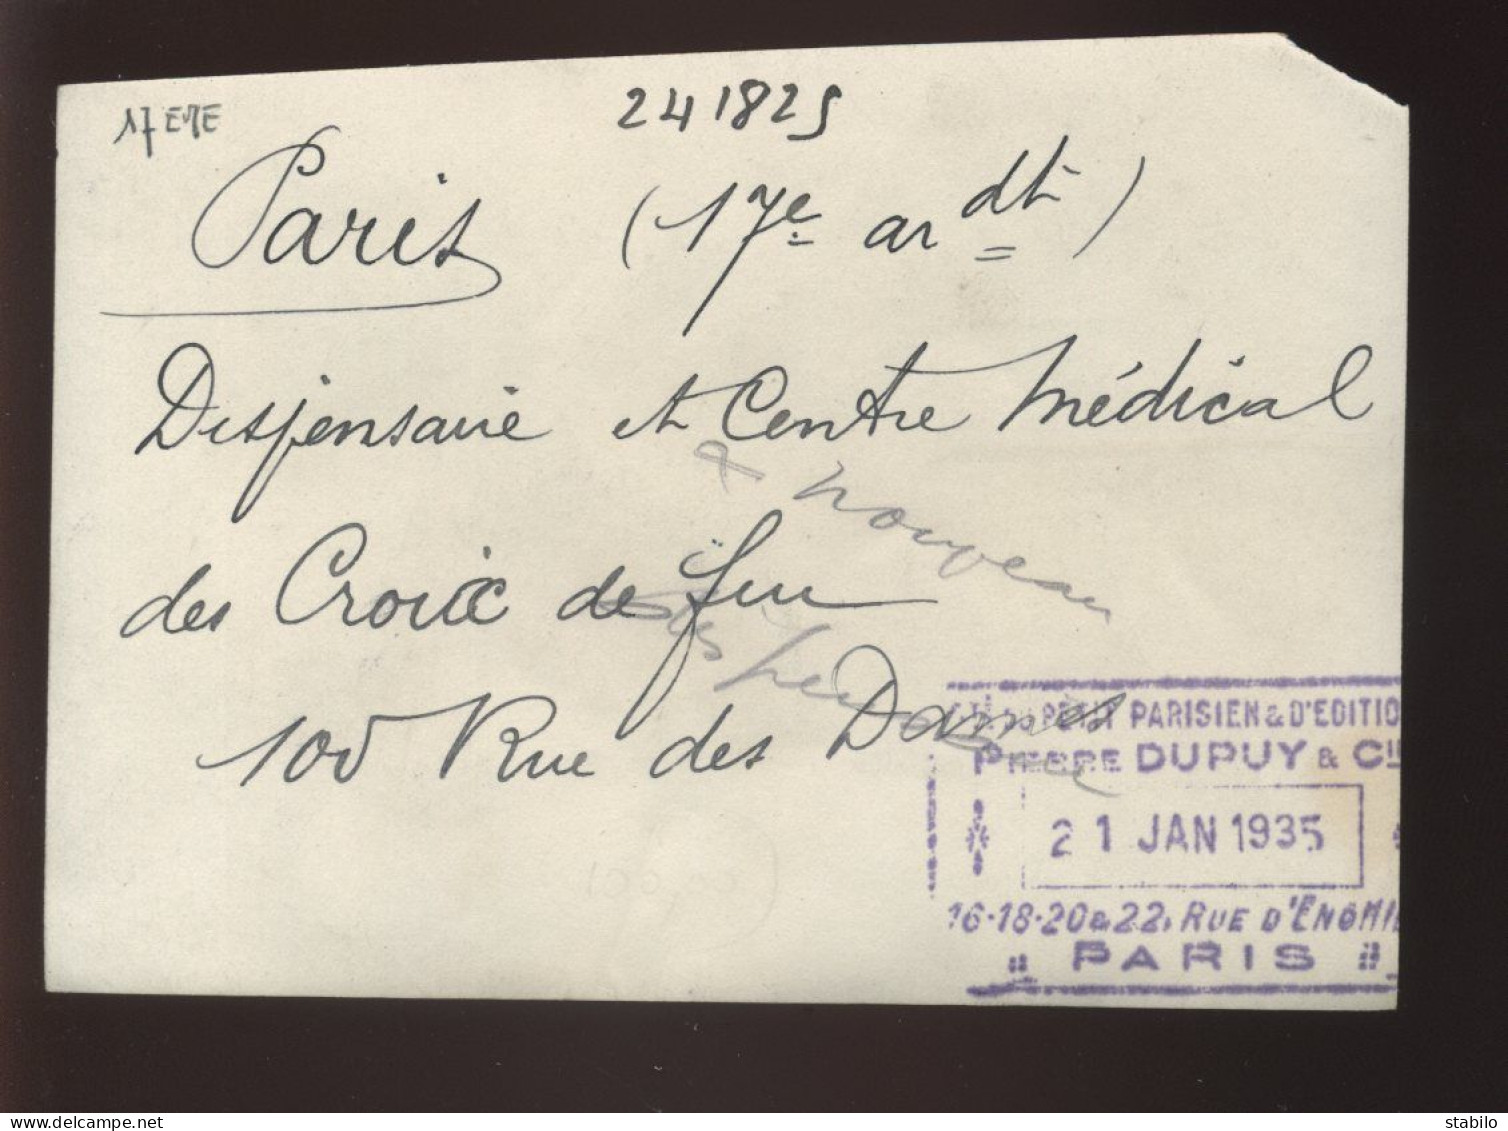 17 EME
241825
Paris (17e ardt)
Dispensaire et Centre Médical
& nouveau
des Croix de feu
100 Rue des Dames
PETIT PARISIEN & D'EDITIO
PIERRE DUPUY & CIE
21 JAN 1935
16·18·20 & 22, RUE D'ENGHI
PARIS
stabilo
https://www.delcampe.net